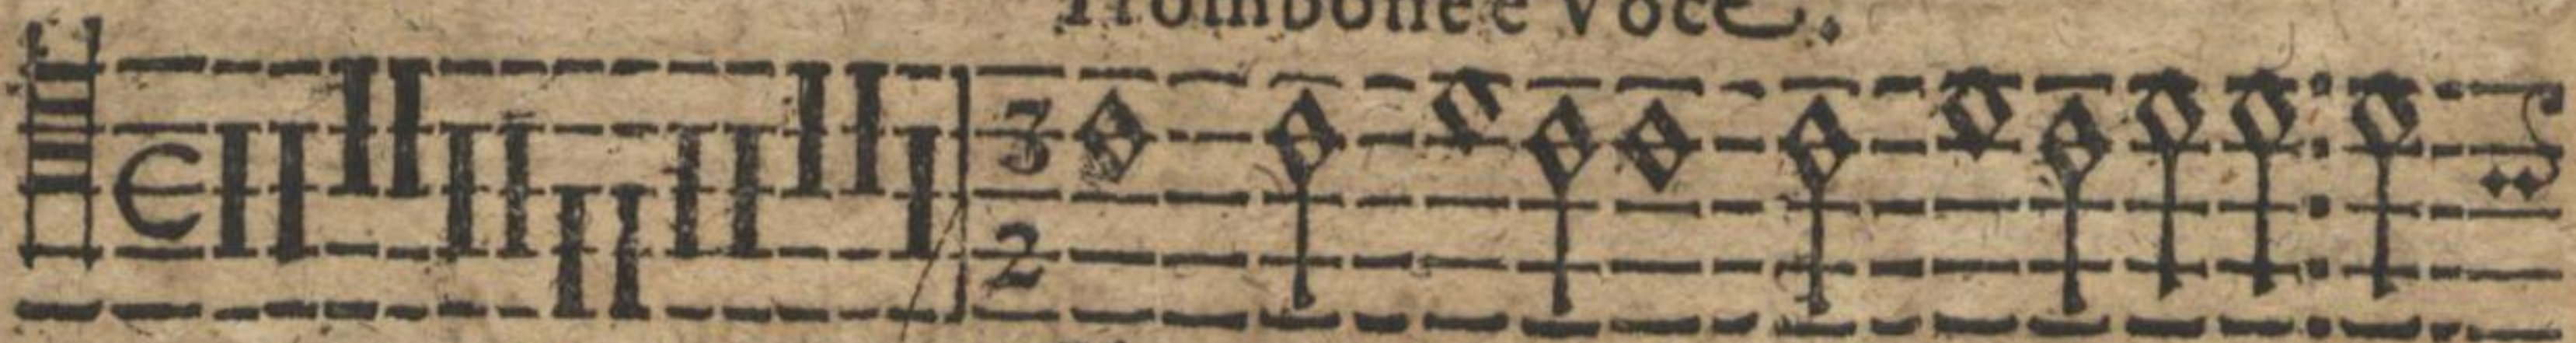 Trombone e Voce.
3
2